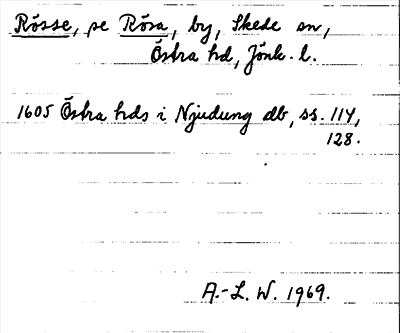 Rösse, se Rösa, by, Skede sn,
Östra hd, Jönk. l.
1605 Östra hds i Njudung db, ss. 114,
128.
A.-L. W. 1969.